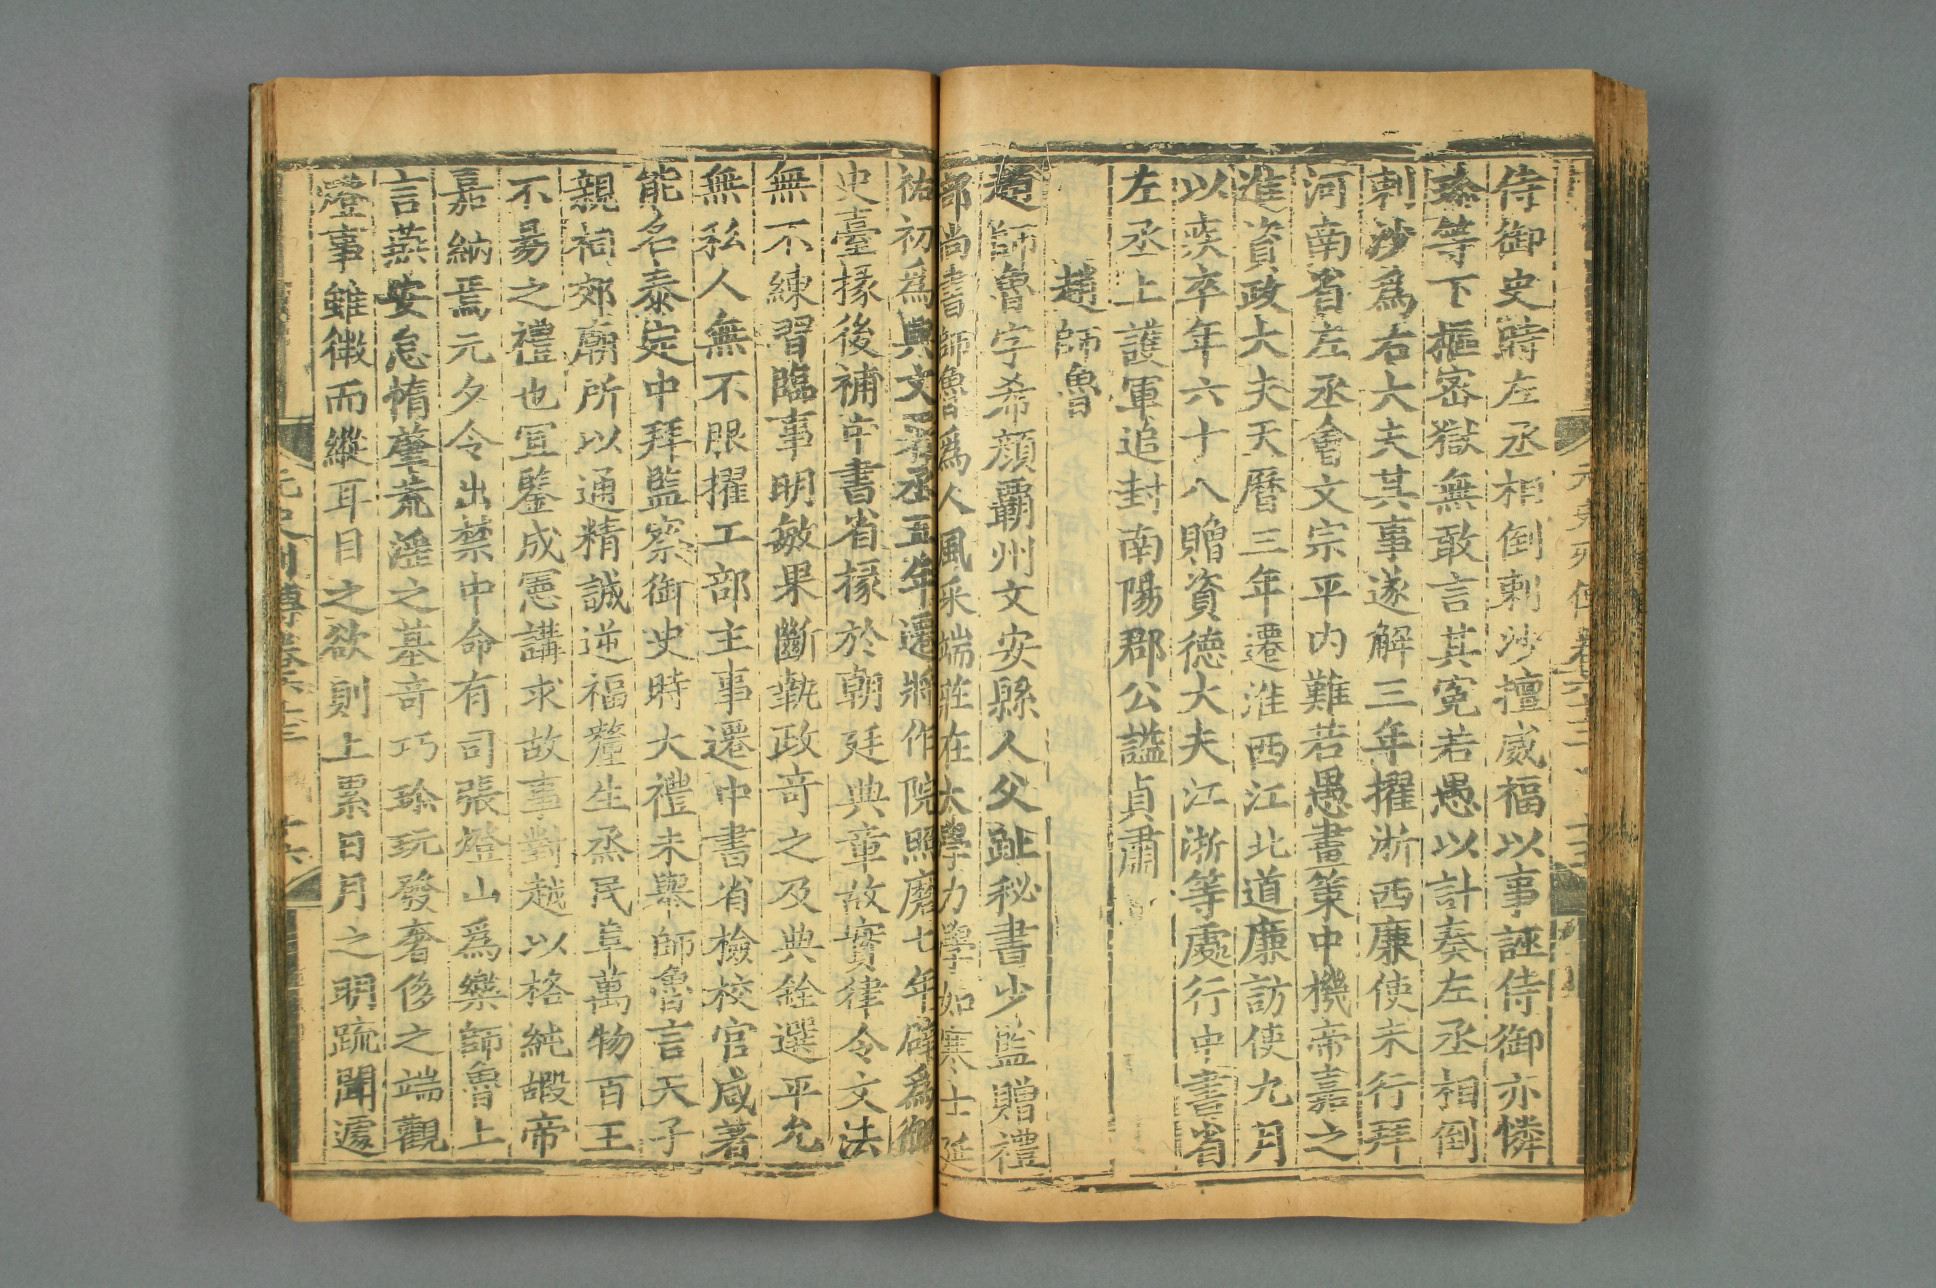 侍御史時左丞相倒剌沙擅威福以事誣侍御亦憐
珎等下樞密獄無敢言其寃若愚以計奏左丞相倒
剌沙爲右大夫其事遂解三年擢浙西廉使未行拜
河南省左丞會文宗平内難若愚畫策中機帝嘉之
進資政大夫天曆三年遷淮西江北道廉訪使九月
以疾卒年六十八贈資德大夫江浙等處行中書省
左丞上護軍追封南陽郡公諡貞肅
趙師魯
趙師魯字希顔覇州文安縣人父趾秘書少監贈禮
部尚書師魯爲人風采端莊在太學力學如寒士延
祐初爲興文署丞五年遷將作院照磨七年辟爲御
史臺掾後補中書省掾於朝廷典章故實律令文法
無不練習臨事明敏果斷執政竒之及典銓選平允
無私人無不服擢工部主事遷中書省檢校官咸著
能名泰定中拜監察御史時大禮未舉師魯言天子
親祠郊廟所以通精誠逆福釐生烝民阜萬物百王
不易之禮也宜鑒成憲講求故事對越以格純嘏帝
嘉納焉元夕令出禁中命有司張燈山爲樂師魯上
言燕安怠惰蓋荒淫之基竒巧珎玩發奢侈之端觀
燈事雖微而縱耳目之欲則上累日月之明疏聞遽
元史列傳卷六十三 十六